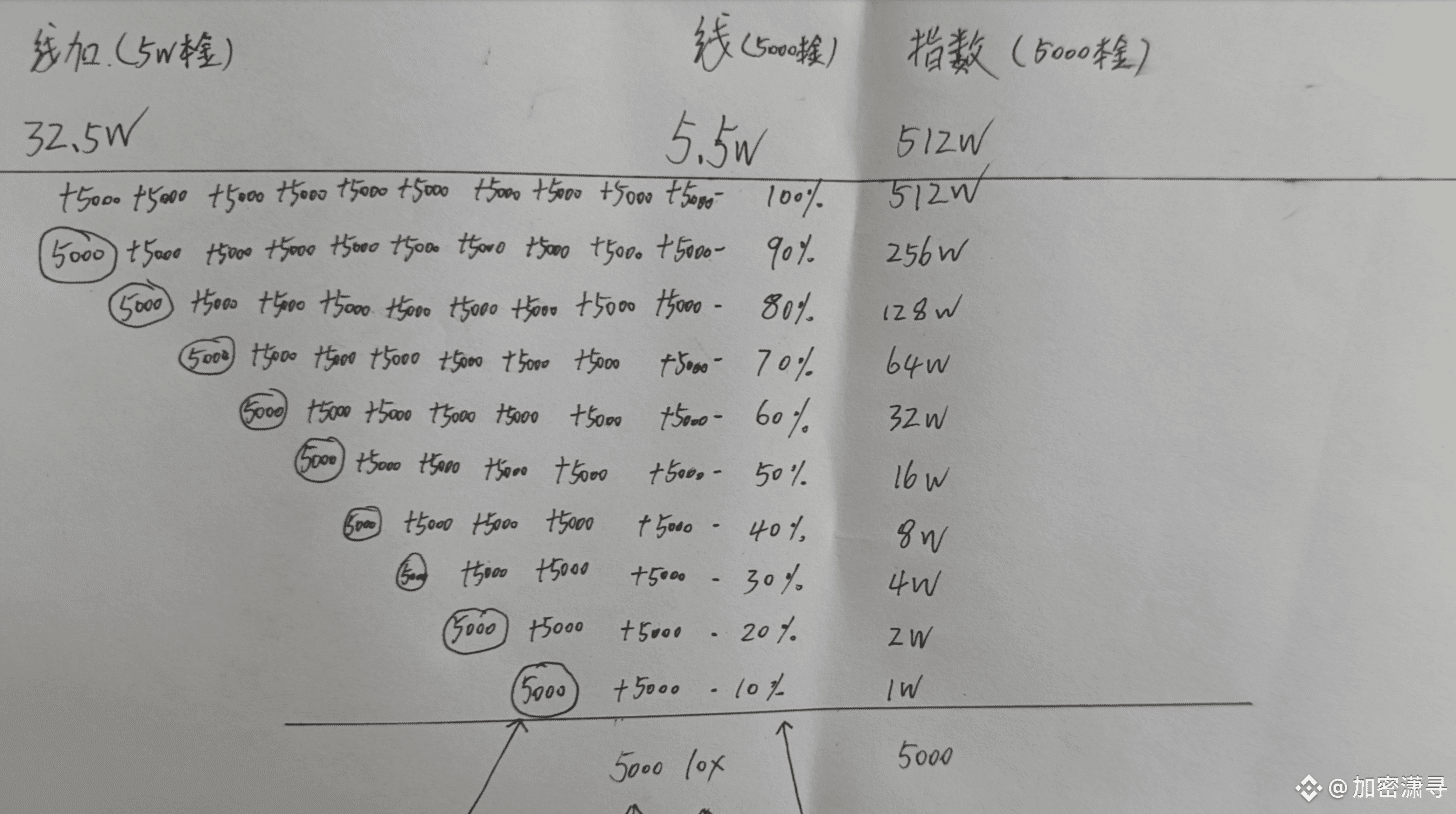 线加.(5W本金) 线(5000本金) 指数(5000本金)
32.5W 5.5W 512W
+5000 +5000 +5000 +5000 +5000 +5000 +5000 +5000 +5000 +5000- 100% 512W
5000 +5000 +5000 +5000 +5000 +5000 +5000 +5000 +5000 +5000- 90% 256W
5000 +5000 +5000 +5000 +5000 +5000 +5000 +5000 +5000- 80% 128W
5000 +5000 +5000 +5000 +5000 +5000 +5000 +5000- 70% 64W
5000 +5000 +5000 +5000 +5000 +5000 +5000- 60% 32W
5000 +5000 +5000 +5000 +5000 +5000- 50% 16W
5000 +5000 +5000 +5000 +5000- 40% 8W
5000 +5000 +5000 +5000- 30% 4W
5000 +5000 +5000- 20% 2W
5000 +5000- 10% 1W
5000 10X 5000
@加密潇寻